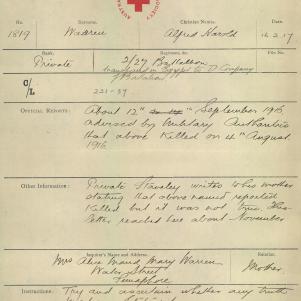 No. Surname. Christian Names. Date.
1819 Warren Alfred Harold 16.2.17
Rank. Regiment, &c. File No.
Private 2/29 Battalion
transferred in Egypt to D Company
Battalion
C/L 221-37
OFFICIAL REPORTS: About 12th September 1916
advised by Military Authorities
that above killed on 4th August
1916
Other Information: Private writes to his mother
stating that above named reported
Killed but it was not true. This
letter reached her about November
Inquirer's Name and Address. Relation.
Mrs Alice Maud Mary Warren
Water Street Mother.
Instructions: Try and ascertain whether any truth